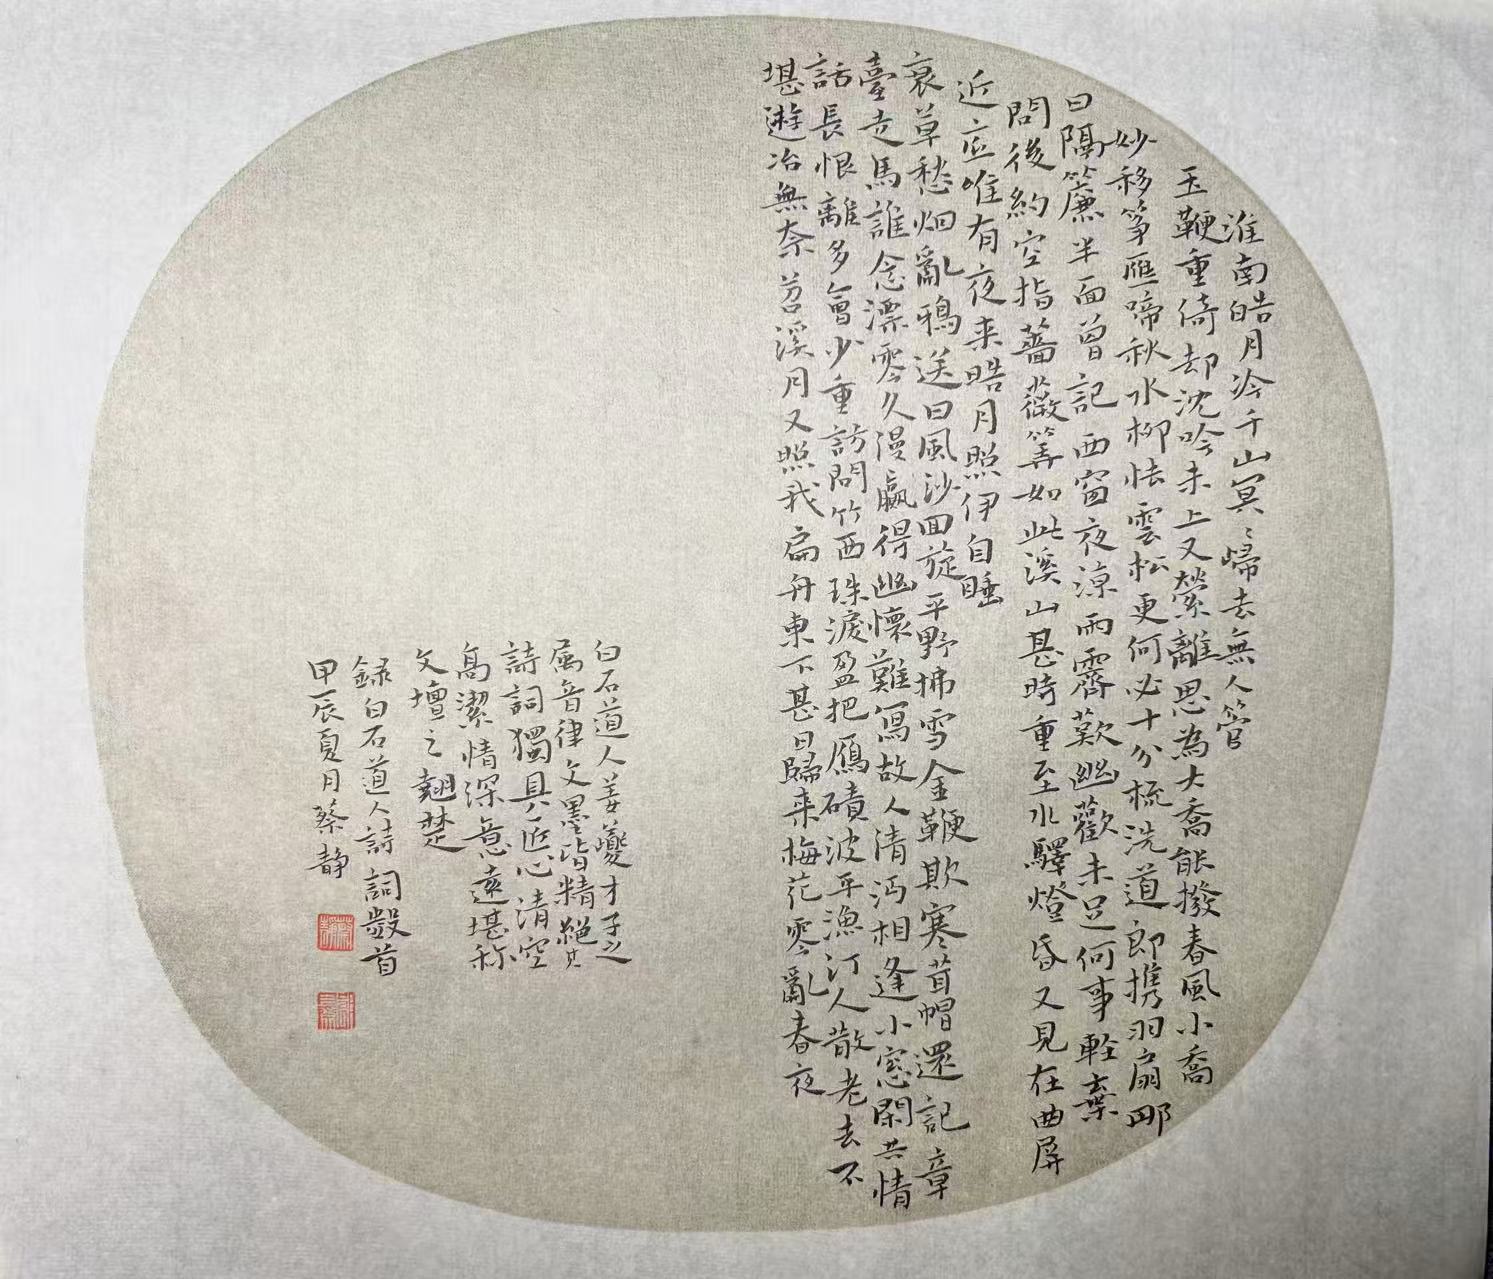 淮南皓月冷千山冥〻歸去無人管
玉鞭重倚却沈吟未上又縈離思為大喬能撥春風小喬
妙移筝雁啼秋水柳怯雲松更何必十分梳洗道郎携羽扇那
日隔簾半面曾記西窗夜涼雨霽歎幽歡未足何事輕棄
問後約空指薔薇筭如此溪山甚時重至水驛燈昏又見在曲屏
近底唯有夜来皓月照伊自睡
衰草愁烟亂鴉送日風沙回旋平野拂雪金鞭欺寒茸帽還記章
臺走馬誰念漂零久漫贏得幽懷難寫故人清沔相逢小窓閑共情
話長恨離多會少重訪問竹西珠淚盈把雁磧波平漁汀人散老去不
堪遊冶無奈苕溪月又照我扁舟東下甚日歸来梅花零亂春夜
白石道人姜夔才子之
属音律文墨皆精絕其
詩詞獨具匠心清空
高潔情深意遠堪称
文壇之翹楚
録白石道人詩詞數首
甲辰夏月蔡静